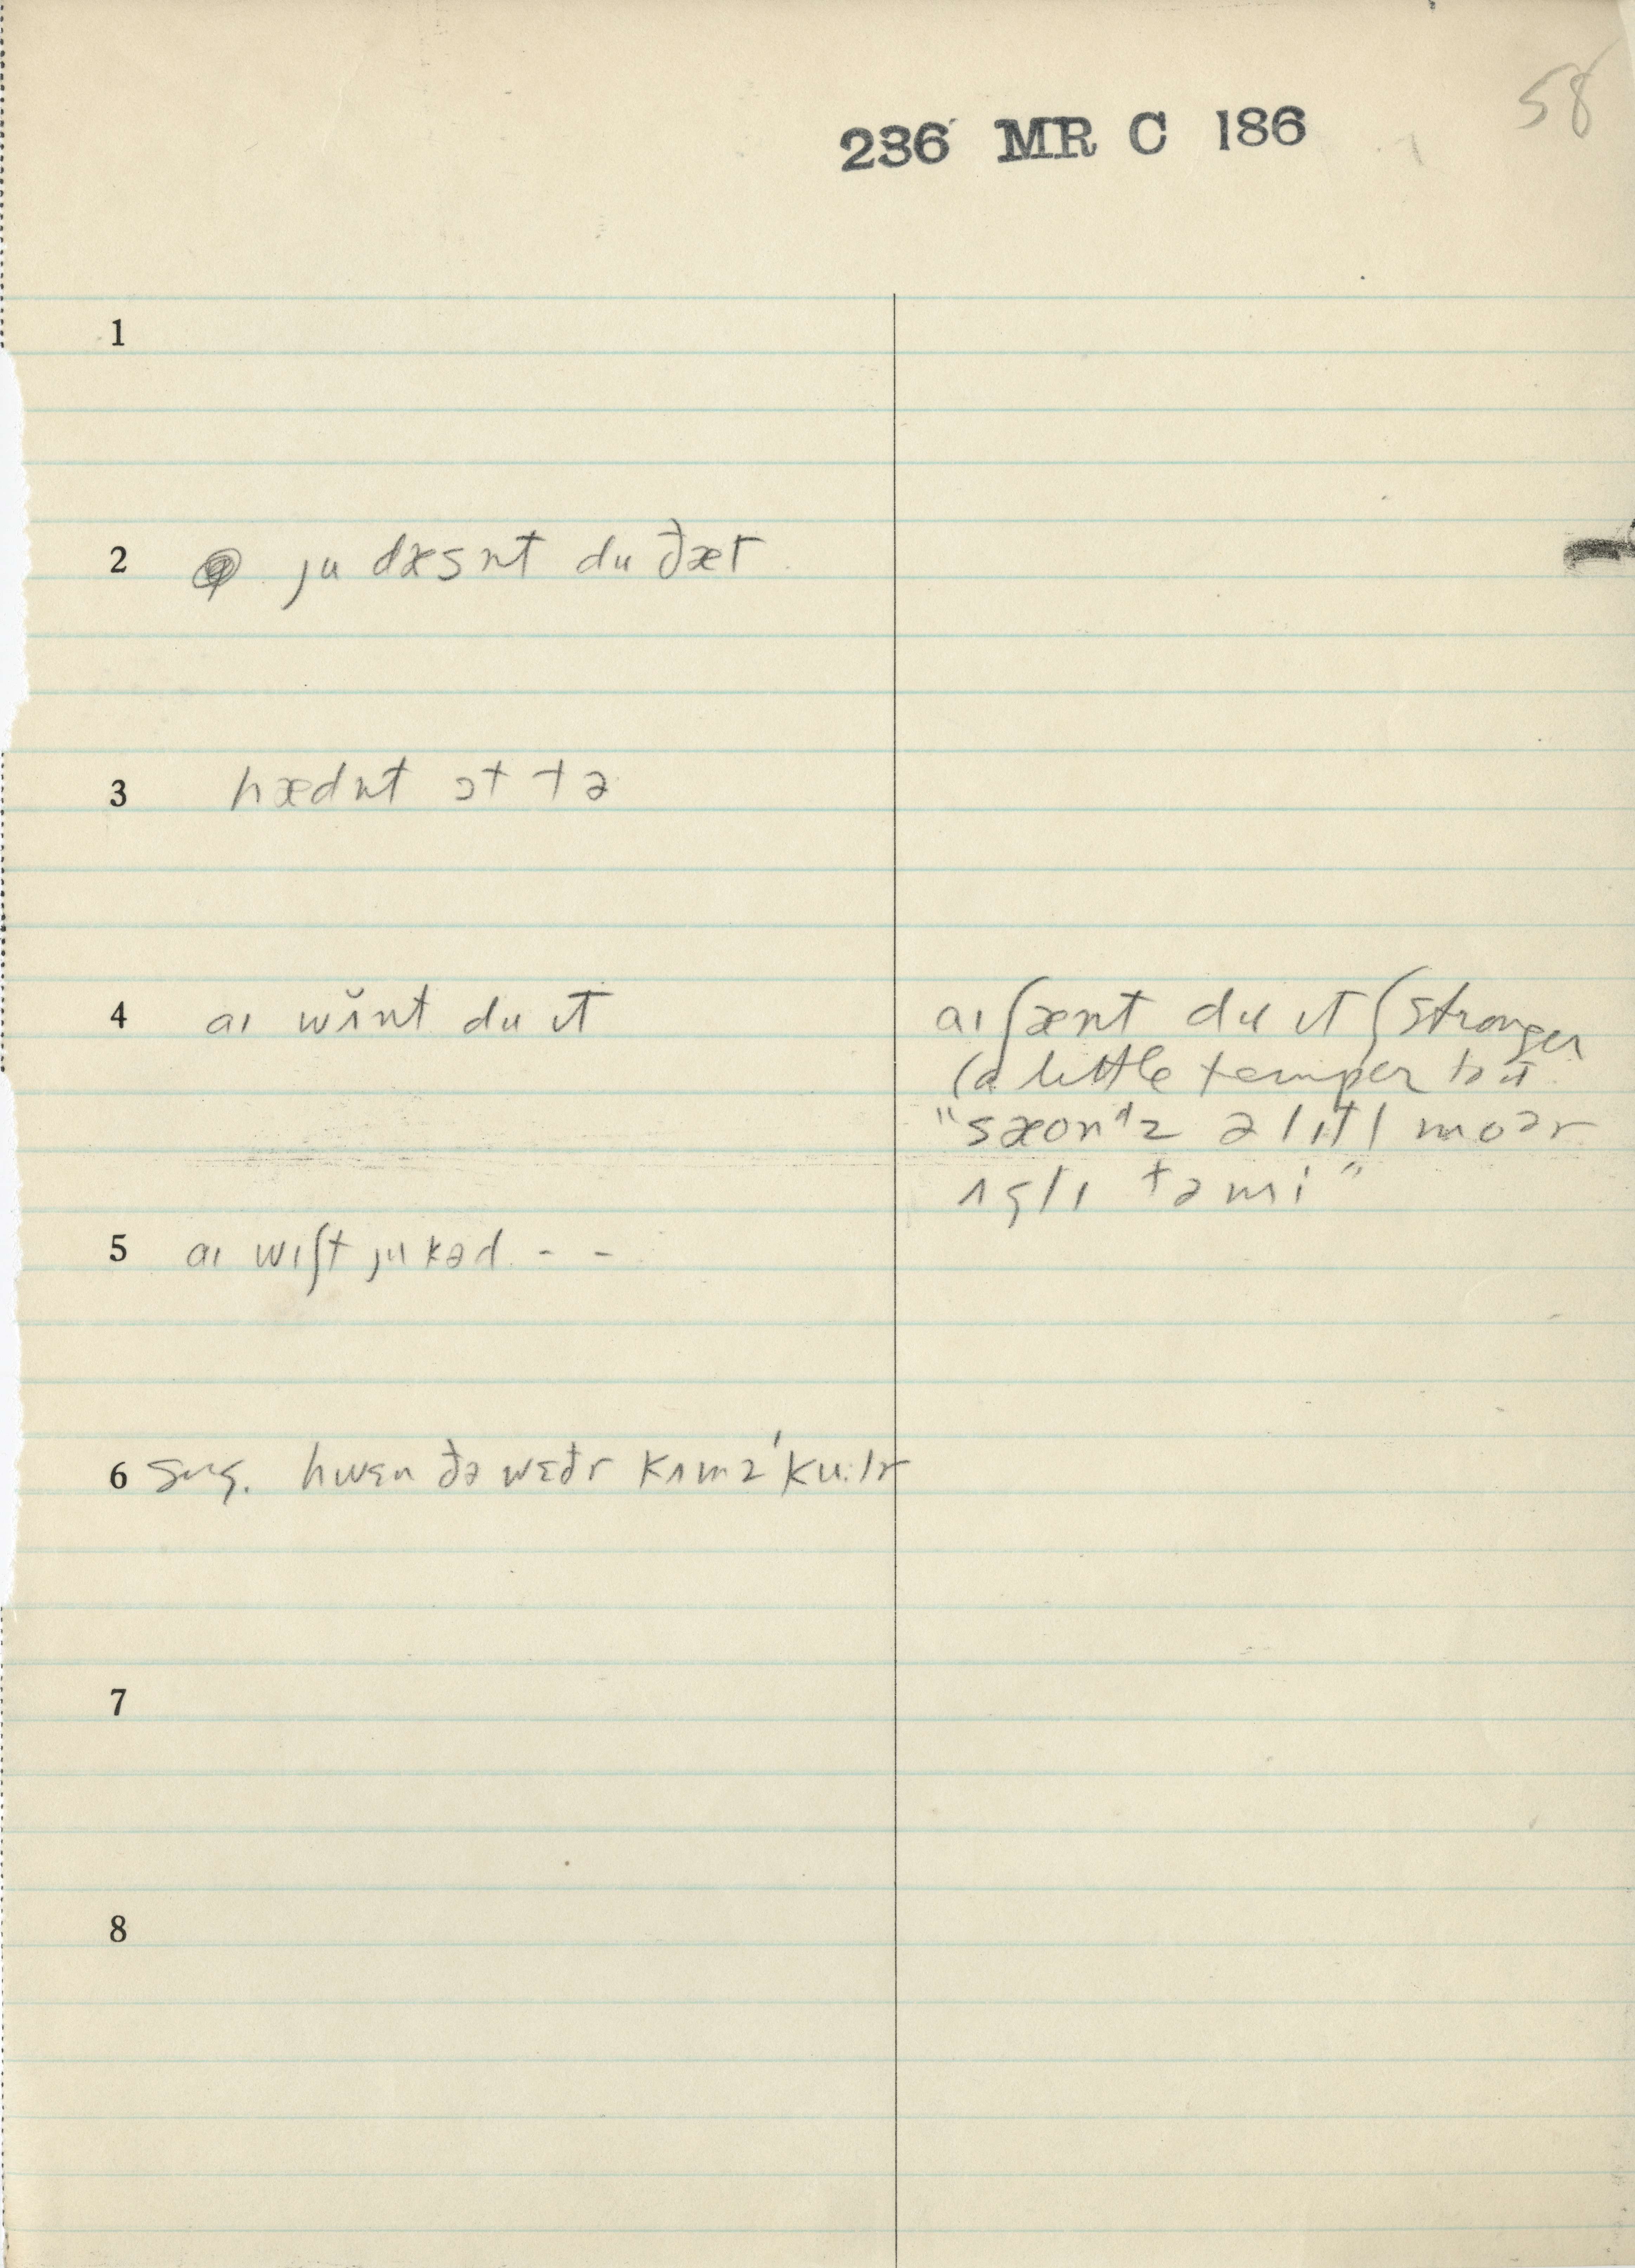 58
236 MR C 186
1
2 ju dæsnt du ðæt
3 hædnt ɔt tə
4 aɪ wʌ̆nt du ɪt
aɪ ʃænt du ɪt (stronger
(a little temper to it
"sæondz ə lɪtl moər
ʌglɪ tə mi"
5 aɪ wɪʃt ju kəd - -
6 sug. hwɛn ðə wɛðr kʌmz 'ku:lr
7
8